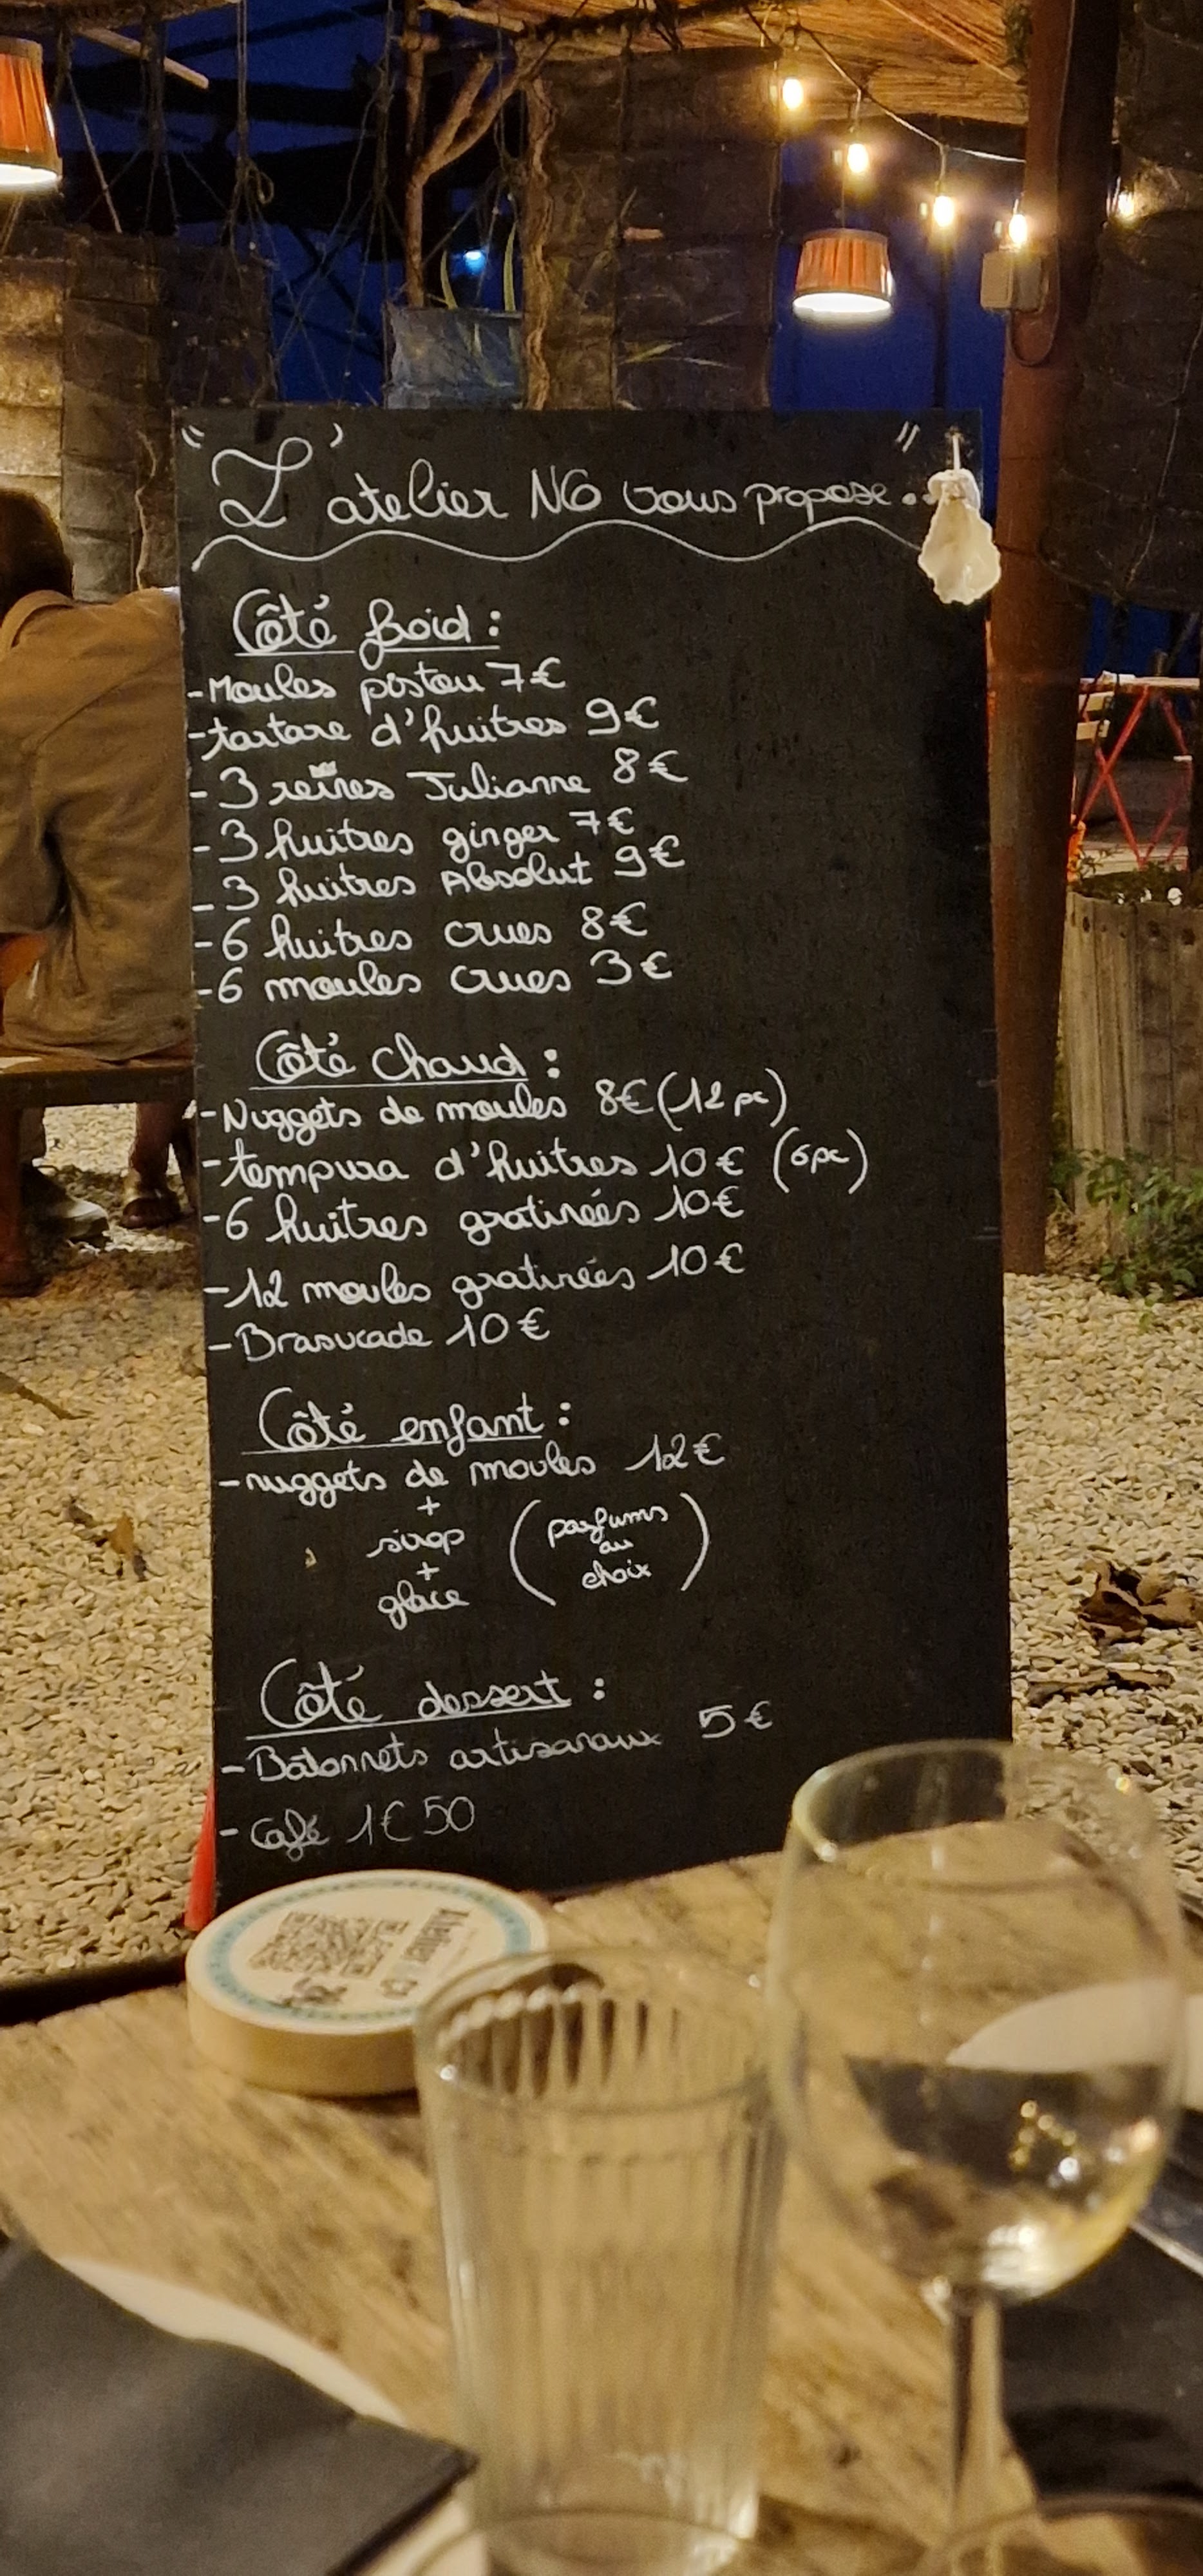 "L'atelier NG vous propose..."
Côté froid :
- Moules pistou 7€
- tartare d'huitres 9€
- 3 reines Julianne 8€
- 3 huitres ginger 7€
- 3 huitres Absolut 9€
- 6 huitres crues 8€
- 6 moules crues 3€
Côté chaud :
- Nuggets de moules 8€ (12 pc)
- tempura d'huitres 10€ (6pc)
- 6 huitres gratinées 10€
- 12 moules gratinées 10€
- Brasucade 10€
Côté enfant :
- nuggets de moules 12€
+
sirop
+
glace
(parfums
au
choix)
Côté dessert :
- Bâtonnets artisanaux 5€
- Café 1€50